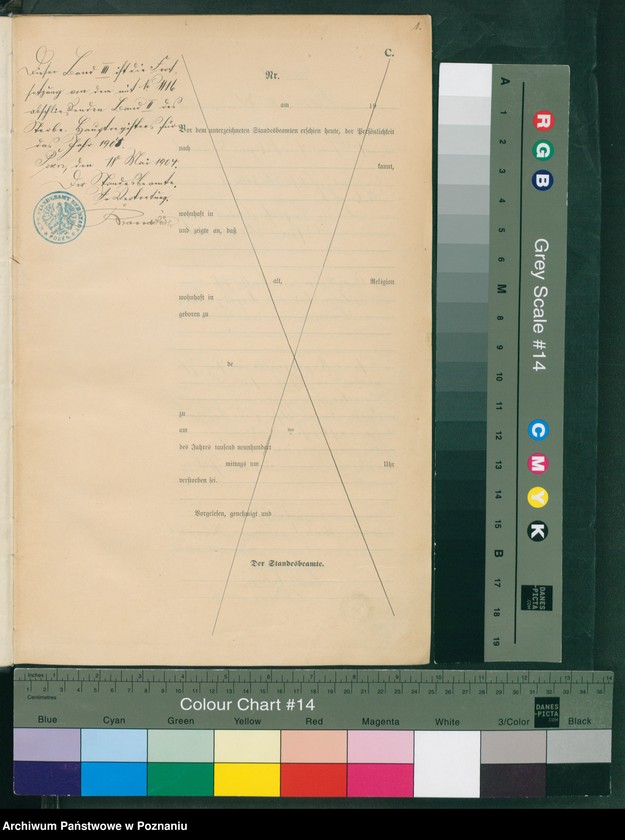 1.
C.
Dieser Band III ist die Fort-
setzung von den mit № 1116
abschließenden Band II des
Sterbe-Hauptregisters für
das Jahr
Posen, den 11 Mai 1904.
Der Standesbeamte.
In Vertretung.
Nr.
am 19
Vor dem unterzeichneten Standesbeamten erschien heute, der Persönlichkeit
nach
kannt,
wohnhaft in
und zeigte an, daß
alt, Religion
wohnhaft in
geboren zu
de
zu
am des
des Jahres tausend neunhundert
mittags um Uhr
verstorben sei.
Vorgelesen, genehmigt und
Der Standesbeamte.
A 1 2 3 4 5 6 M 8 9 10 11 12 13 14 15 B 17 18 19
R G B
Grey Scale #14
C M Y K
DANES
-PICTA
.COM
Inches 1 2 3 4 5 6 7 8 9 10 11 12 13 14
Centimetres 1 2 3 4 5 6 7 8 9 10 11 12 13 14 15 16 17 18 19 20 21 22 23 24 25 26 27 28 29 30 31 32 33 34 35
Colour Chart #14
DANES
-PICTA
.COM
Blue Cyan Green Yellow Red Magenta White 3/Color Black
Archiwum Państwowe w Poznaniu